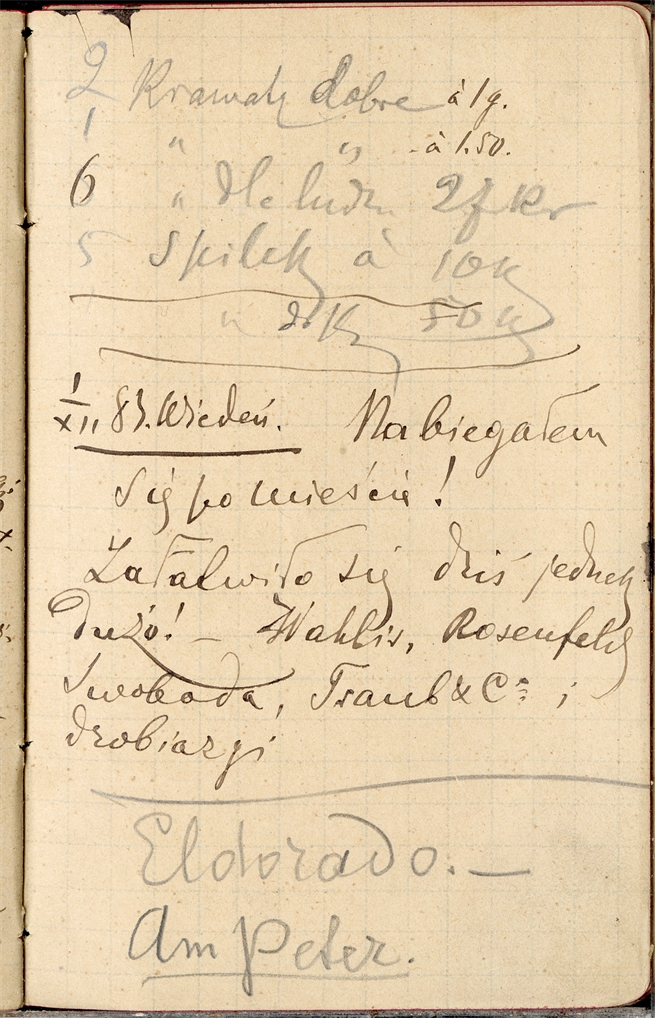 2 Krawaty dobre à 1 g.
1 " " - à 1.50.
6 " dla ludzi 27 kr
5 Spilek à 10 k
" 50 k
1/XII 83. Wiedeń. Nabiegałem
się po mieście!
Załatwiło się dziś jednak
dużo! — Wahlis, Rosenfeld,
Swoboda, Traub & Co i
drobiazgi
Eldorado. —
Am Peter.